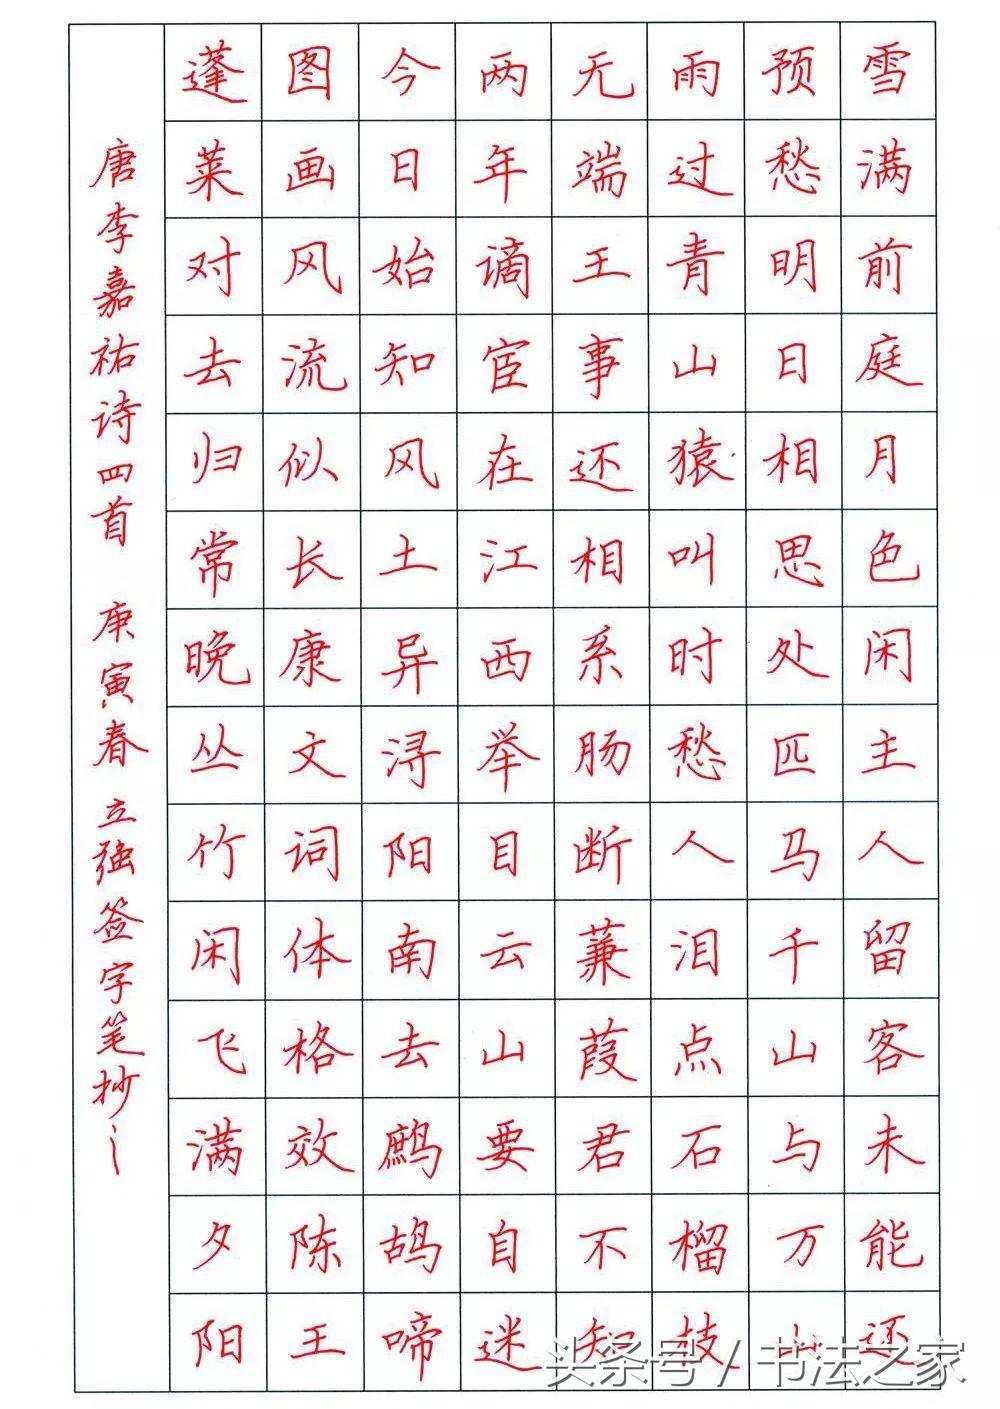 雪满前庭月色闲主人留客未能还
预愁明日相思处匹马千山与万山
雨过青山猿叫时愁人泪点石榴枝
无端王事还相系肠断蒹葭君不知
两年谪宦在江西举目云山要自迷
今日始知风土异浔阳南去鹧鸪啼
图画风流似长康文词体格效陈王
蓬莱对去归常晚丛竹闲飞满夕阳
唐李嘉祐诗四首 庚寅春 立强签字笔抄之
头条号/书法之家